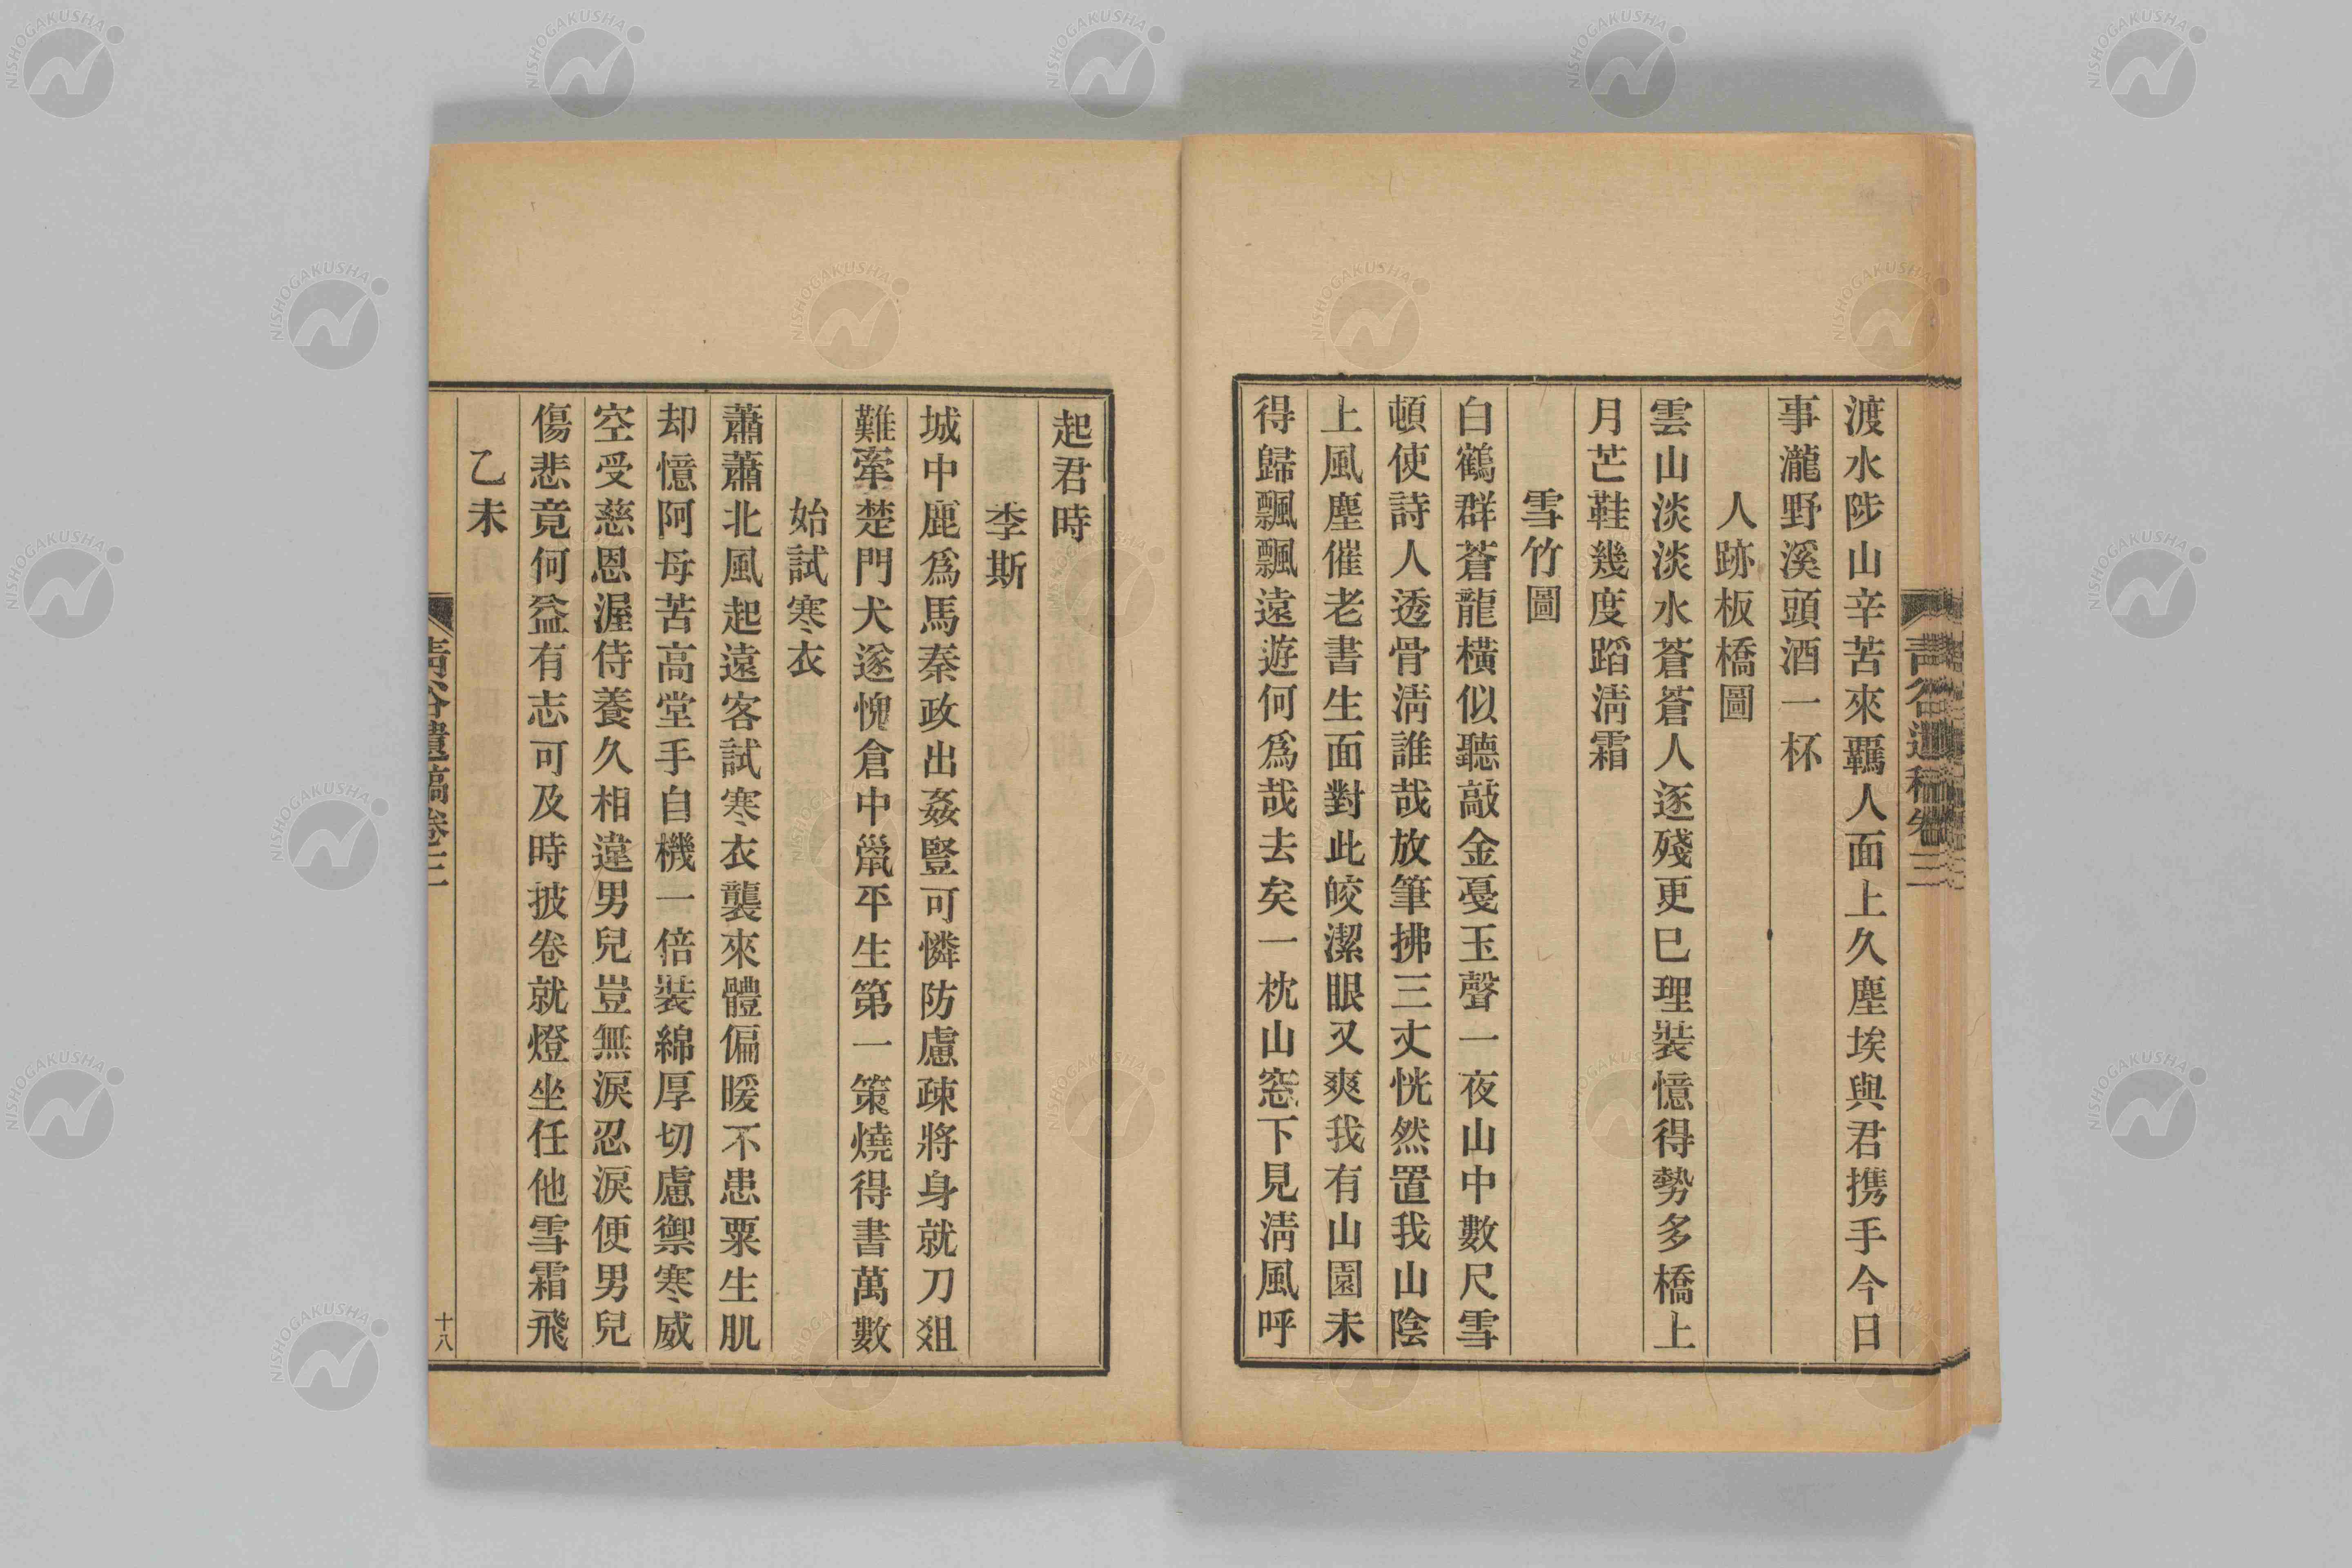 渡水陟山辛苦來羈人面上久塵埃與君携手今日
事瀧野溪頭酒一杯
人跡板橋圖
雲山淡淡水蒼蒼人逐殘更已理裝憶得勢多橋上
月芒鞋幾度蹈淸霜
雪竹圖
白鶴群蒼龍橫似聽敲金戞玉聲一夜山中數尺雪
頓使詩人透骨淸誰哉放筆拂三丈恍然置我山陰
上風塵催老書生面對此皎潔眼又爽我有山園未
得歸飄飄遠遊何爲哉去矣一枕山窓下見淸風呼
起君時
李斯
城中鹿爲馬秦政出姦豎可憐防慮疎將身就刀俎
難牽楚門犬遂愧倉中鼠平生第一策燒得書萬數
始試寒衣
蕭蕭北風起遠客試寒衣襲來體偏暖不患粟生肌
却憶阿母苦高堂手自機一倍裝綿厚切慮禦寒威
空受慈恩渥侍養久相違男兒豈無淚忍淚便男兒
傷悲竟何益有志可及時披卷就燈坐任他雪霜飛
乙未
靑谷遺稿卷三
十八
NISHOGAKUSHA